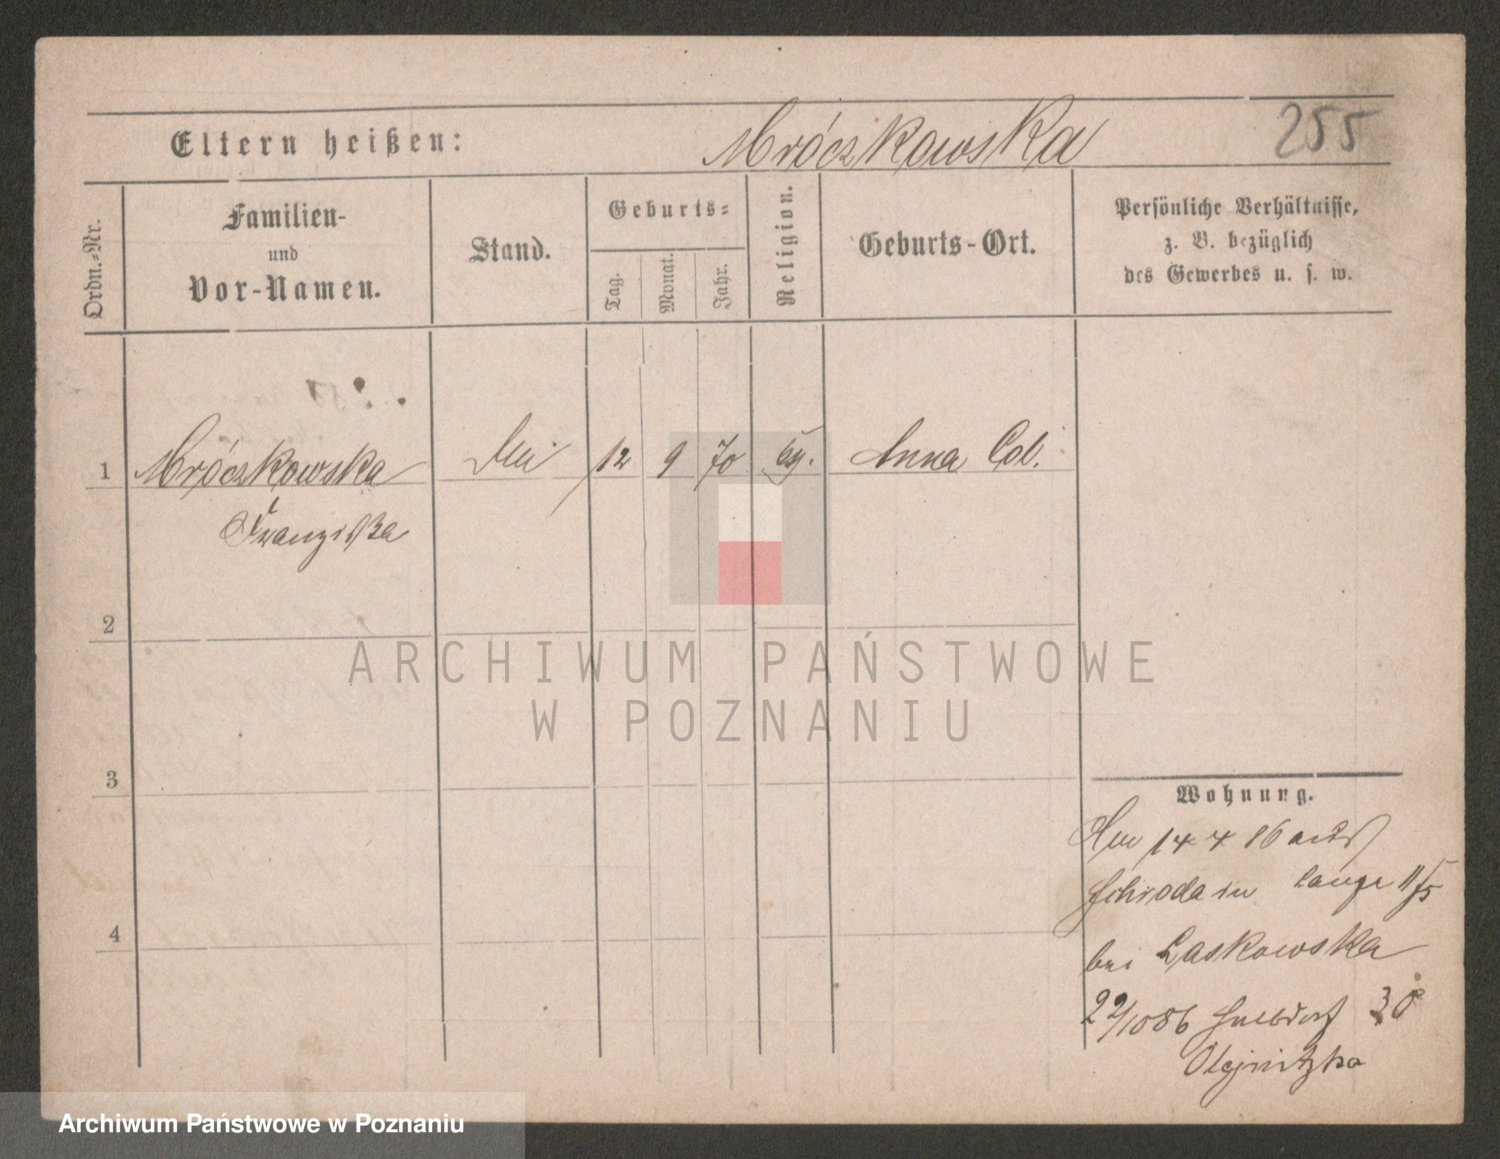 Eltern heißen: Mróczkowska 255
Ordn.-Nr.
Familien-
und
Vor-Namen.
Stand.
Geburts-
Tag.
Monat.
Jahr.
Religion.
Geburts-Ort.
Persönliche Verhältnisse,
z. B. bezüglich
des Gewerbes u. s. w.
1 Mróczkowska 12 9 70 Anna Col.
Franziska
2
3
4
Wohnung.
14 4 86 aus
Schroda in lange 11/5
bei Laskowska
22/10 86 Halbdorf 30
Olejnitzka
ARCHIWUM PAŃSTWOWE
W POZNANIU
Archiwum Państwowe w Poznaniu